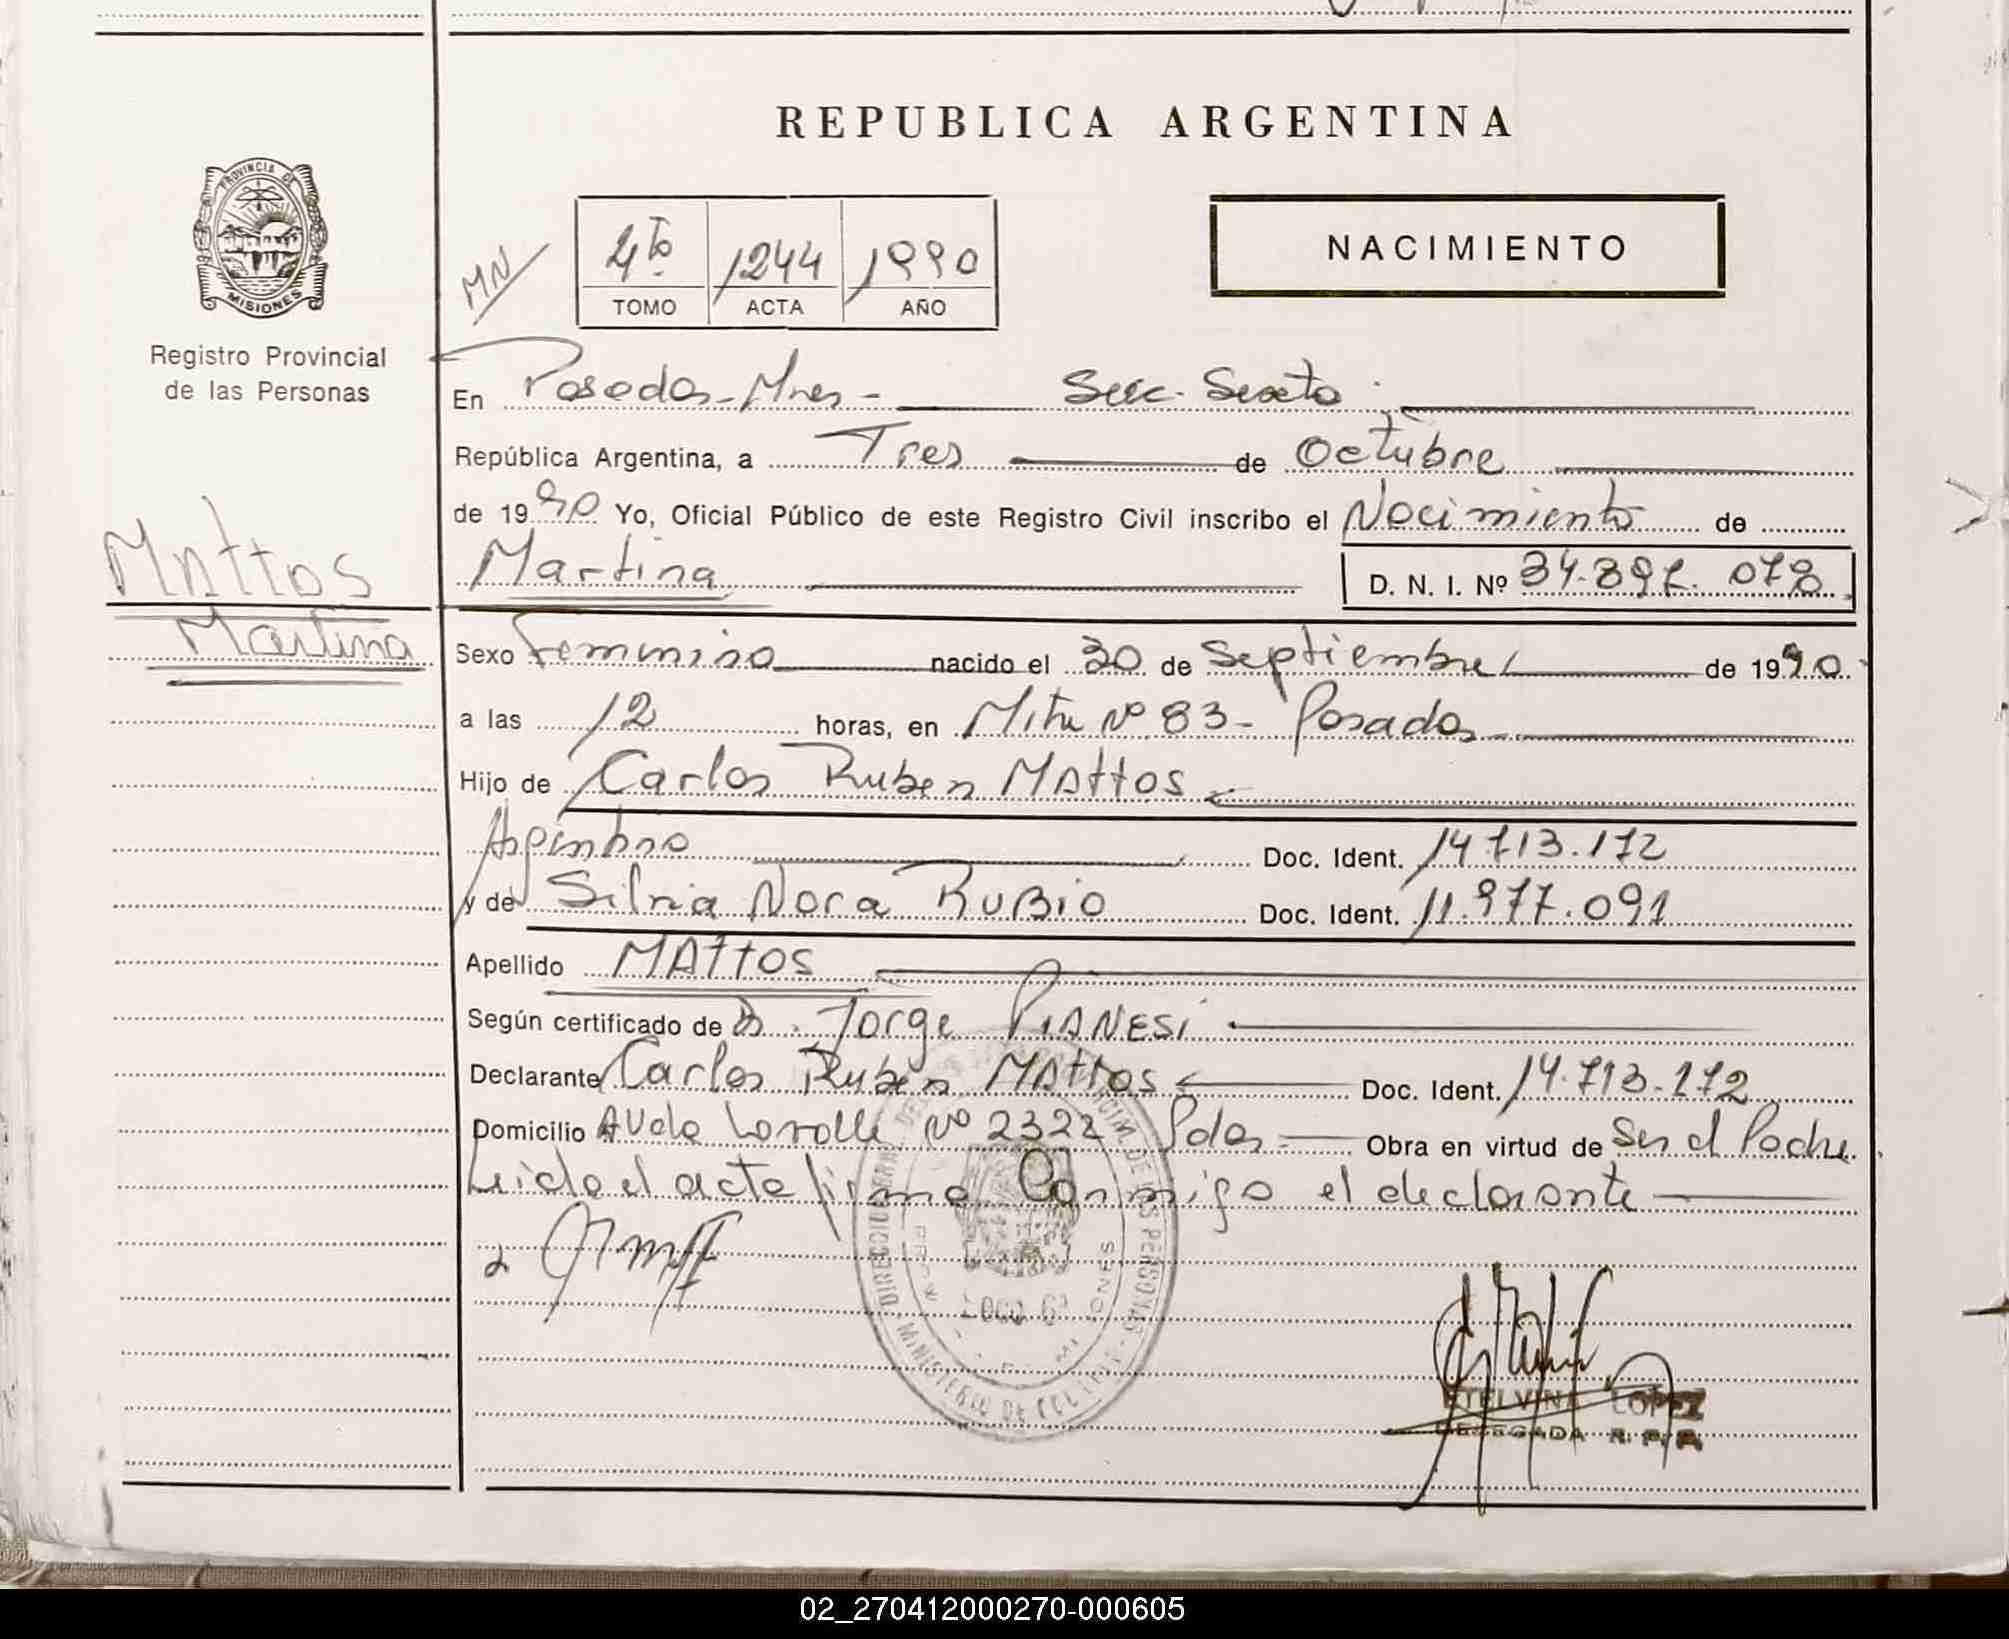 REPUBLICA ARGENTINA
PROVINCIA DE
MISIONES
Registro Provincial
de las Personas
MN
4to 1244 1990
TOMO ACTA AÑO
NACIMIENTO
En Posadas-Mnes- Secc. Sexta
República Argentina, a Tres de Octubre
de 1990 Yo, Oficial Público de este Registro Civil inscribo el Nacimiento de
Martina D. N. I. Nº 34.897.078
MATTOS
Martina
Sexo Femenino nacido el 30 de Septiembre de 1990.
a las 12 horas, en Mitre Nº 83- Posadas
Hijo de Carlos Ruben MATTOS
Argentino Doc. Ident. 14.713.172
y de Silvia Nora RUBIO Doc. Ident. 11.977.091
Apellido MATTOS
Según certificado de Dr. Jorge PIANESI
Declarante Carlos Ruben MATTOS Doc. Ident. 14.713.172
Domicilio AVda Lavalle Nº 2322 Pdas Obra en virtud de Ser el Padre
Leida el acta firma Conmigo el declarante
ETELVINA LOPEZ
DELEGADA R. P. P.
02_270412000270-000605